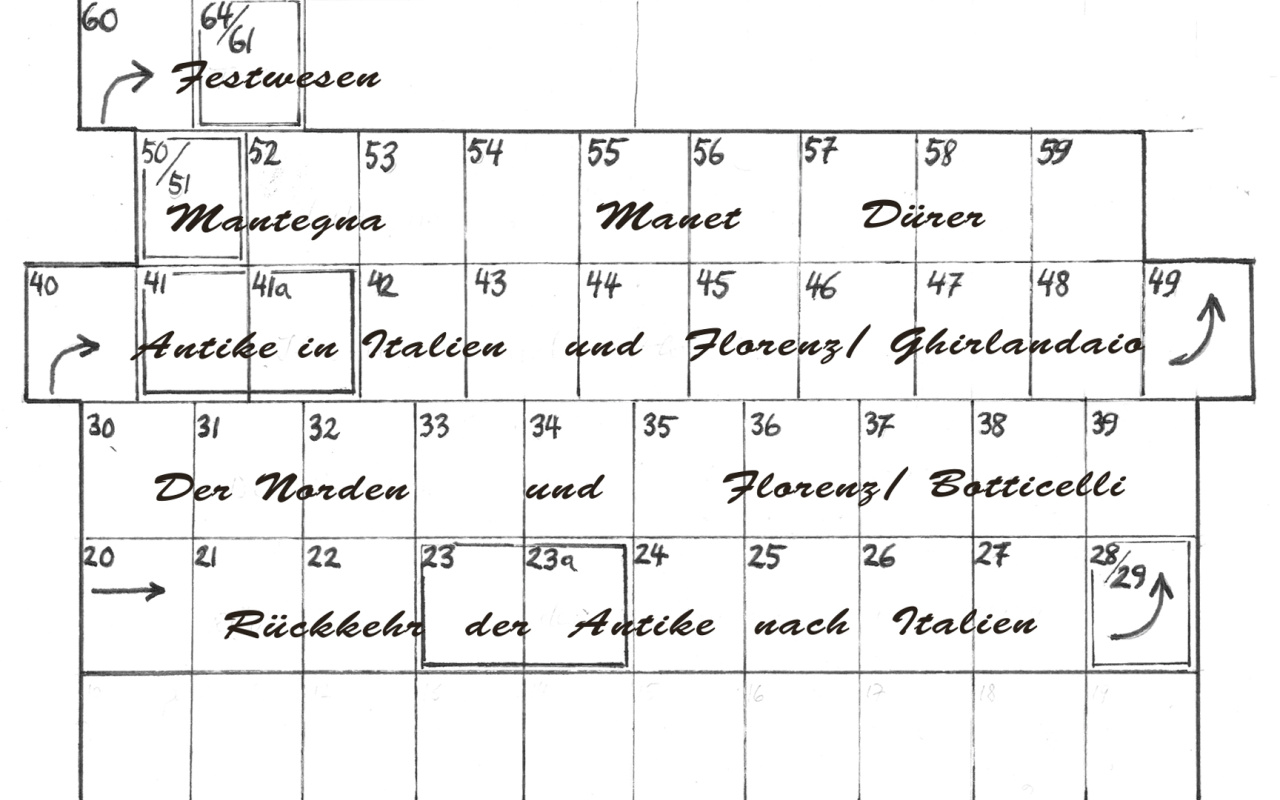 60 64/61
Festwesen
50/51 52 53 54 55 56 57 58 59
Mantegna Manet Dürer
40 41 41a 42 43 44 45 46 47 48 49
Antike in Italien und Florenz/ Ghirlandaio
30 31 32 33 34 35 36 37 38 39
Der Norden und Florenz/ Botticelli
20 21 22 23 23a 24 25 26 27 28/29
Rückkehr der Antike nach Italien
16 17 18